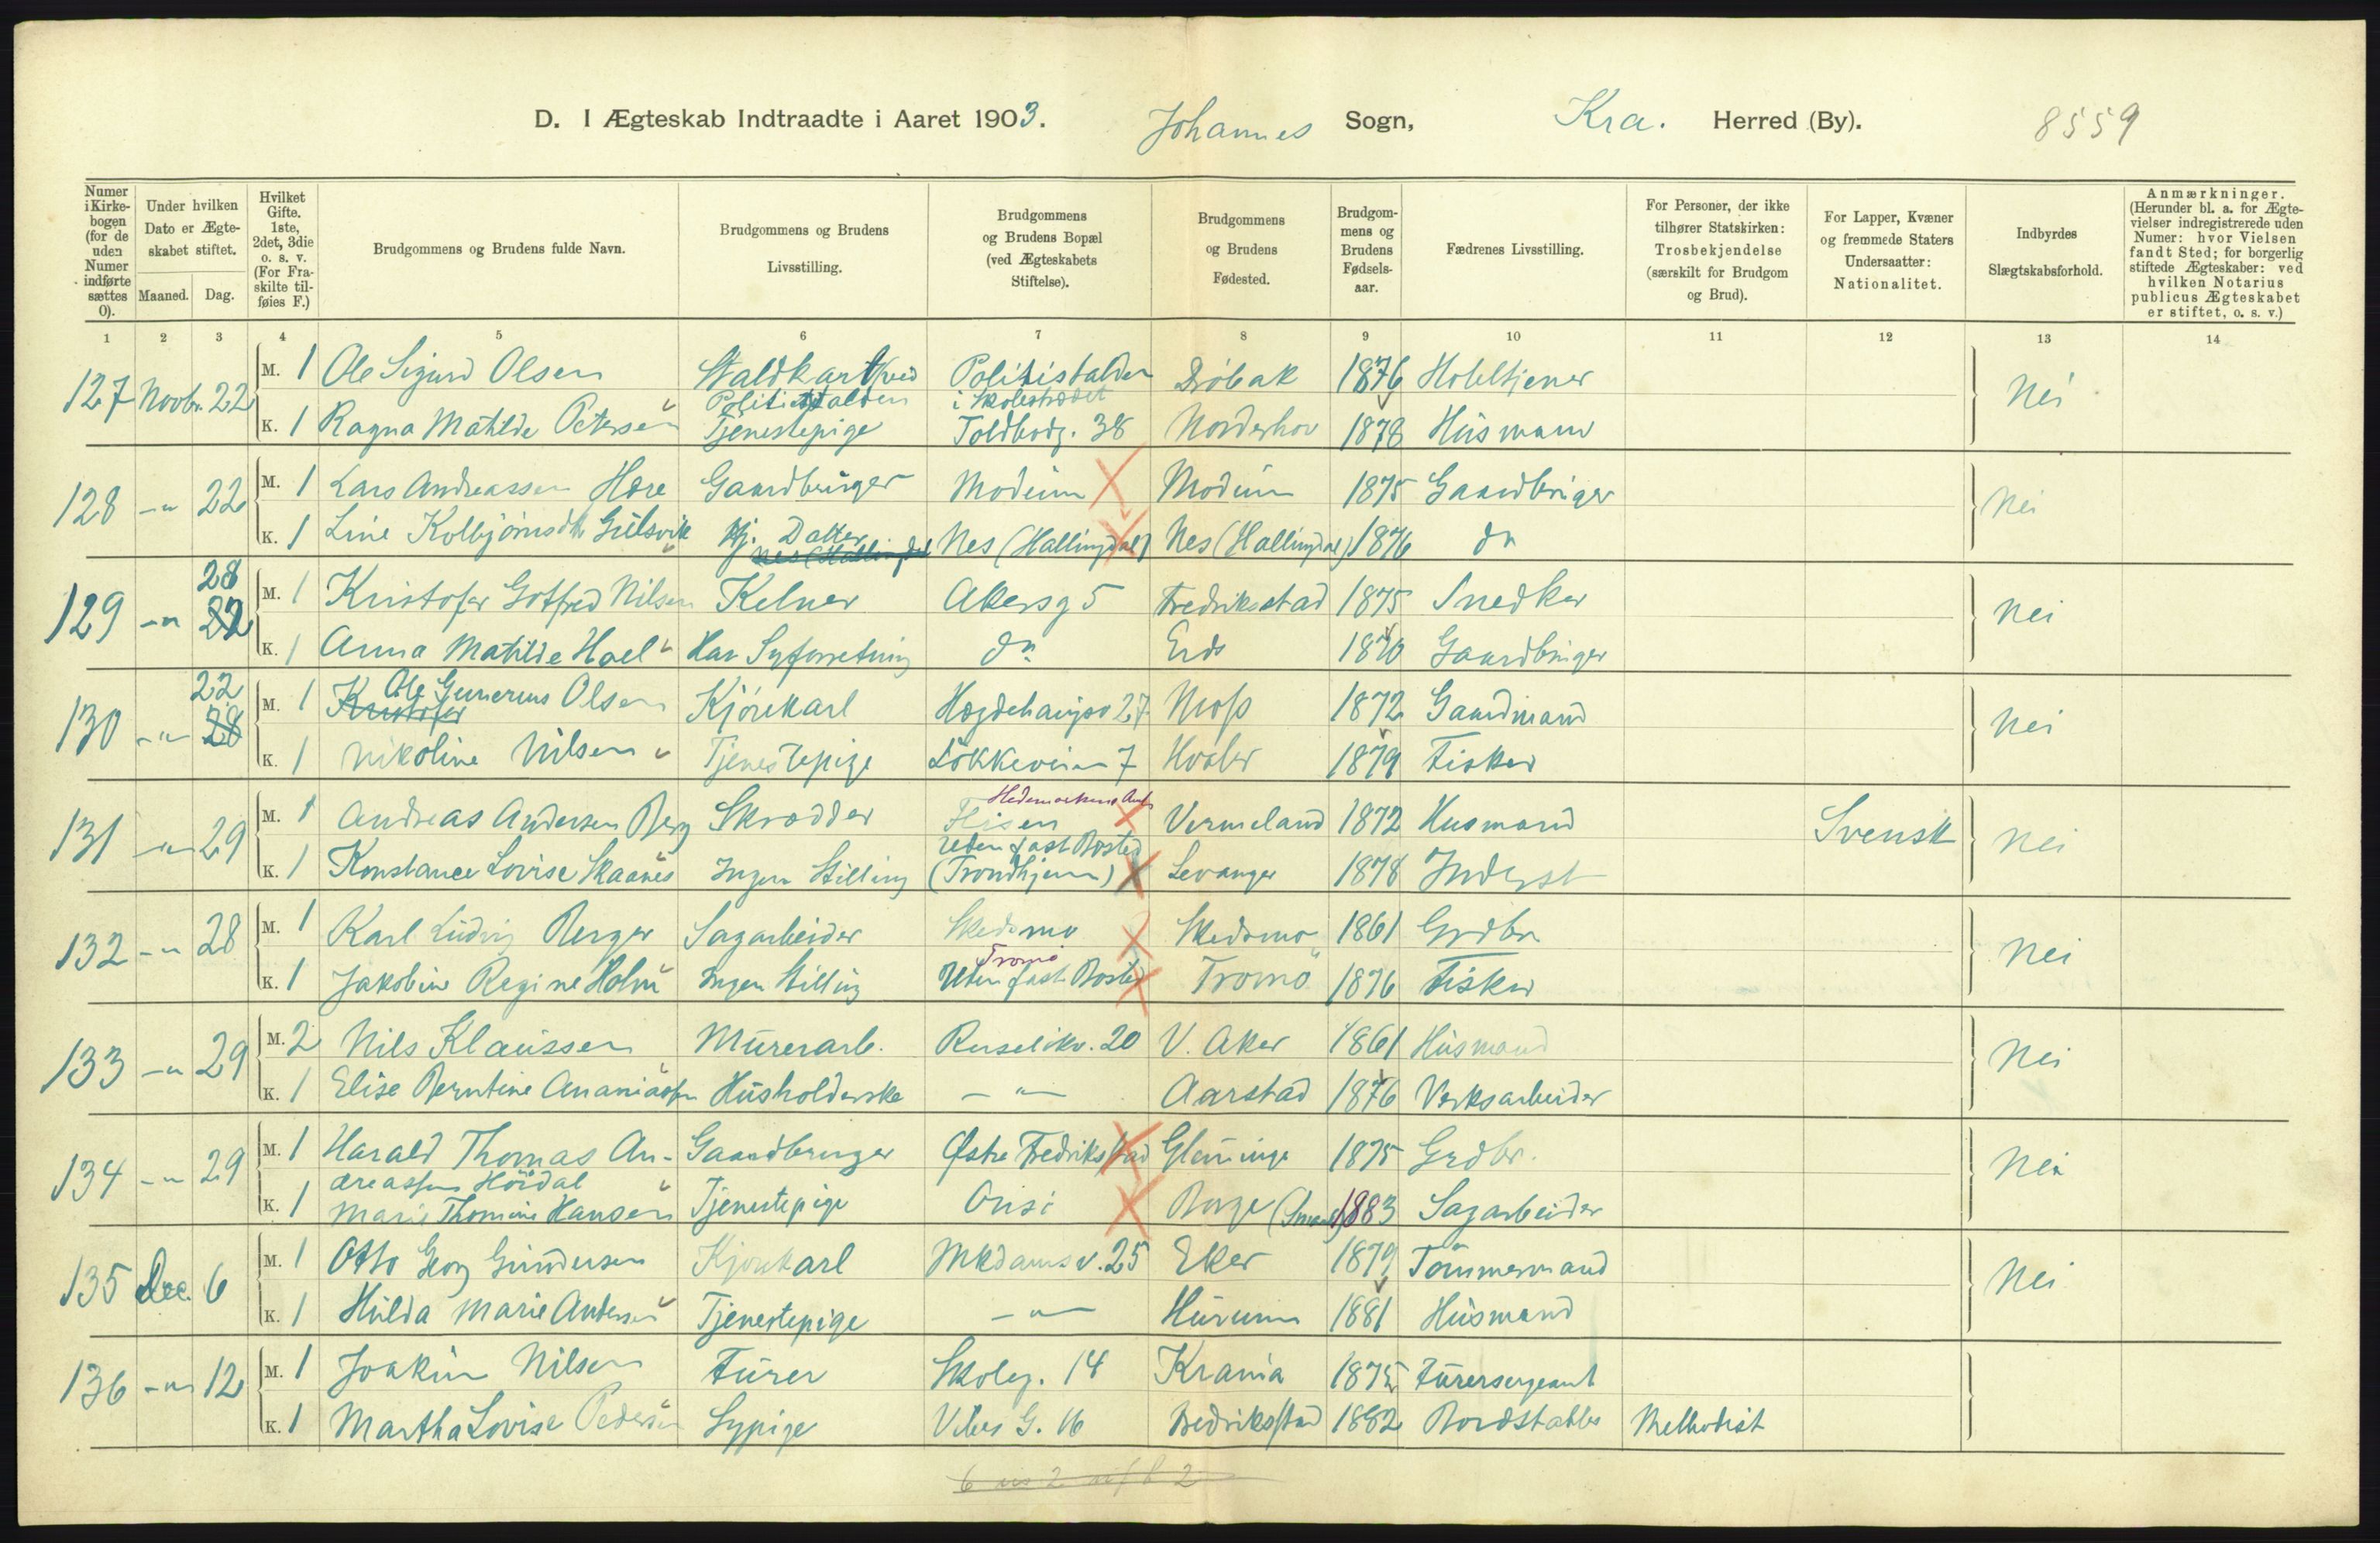 D. I Ægteskab Indtraadte i Aaret 1903. Johannes Sogn, Kra. Herred (By). 8559
Numer i Kirke-bogen (for de uden Numer indførte sættes 0).
Under hvilken Dato er Ægte-skabet stiftet.
Maaned. Dag.
Hvilket Gifte. 1ste, 2det, 3die o. s. v. (For Fra-skilte til-føies F.)
Brudgommens og Brudens fulde Navn.
Brudgommens og Brudens Livsstilling.
Brudgommens og Brudens Bopæl (ved Ægteskabets Stiftelse).
Brudgommens og Brudens Fødested.
Brudgom-mens og Brudens Fødsels-aar.
Fædrenes Livsstilling.
For Personer, der ikke tilhører Statskirken: Trosbekjendelse (særskilt for Brudgom og Brud).
For Lapper, Kvæner og fremmede Staters Undersaatter: Nationalitet.
Indbyrdes Slægtskabsforhold.
Anmærkninger. (Herunder bl. a. for Ægte-vielser indregistrerede uden Numer: hvor Vielsen fandt Sted; for borgerlig stiftede Ægteskaber: ved hvilken Notarius publicus Ægteskabet er stiftet, o. s. v.)
1 2 3 4 5 6 7 8 9 10 11 12 13 14
127 Novbr. 22 M. 1 Ole Sigurd Olsen Staldkarl ved Politistalden Politistalden i Skolestrædet Drøbak 1876 Hoteltjener Nei
K. 1 Ragna Matilde Petersen Tjenestepige Toldbodg. 38 Norderhov 1878 Husmand
128 -"- 22 M. 1 Lars Andreassen Hære Gaardbruger Modum Modum 1875 Gaardbruger Nei
K. 1 Line Kolbjørnsdtr Gulsvik Hj. Datter Nes (Hallingdal) Nes (Hallingdal) 1876 do
129 -"- 28 22 M. 1 Kristofer Gotfred Nilsen Kelner Akersg 5 Fredriksstad 1875 Snedker Nei
K. 1 Anna Matilde Hoel Har Syforretning do Eids 1876 Gaardbruger
130 -"- 22 28 M. 1 Kristofer Ole Gunerius Olsen Kjørekarl Hegdehaugsv 27 Moss 1872 Gaardmand Nei
K. 1 Nikoline Nilsen Tjenestepige Løkkeveien 7 Hvaler 1879 Fisker
131 -"- 29 M. 1 Andreas Andersen Berg Skrædder Flisen Hedemarkens Amt Vermeland 1872 Husmand Svensk Nei
K. 1 Konstance Lovise Skaanes Ingen Stilling Uden fast Bosted (Trondhjem) Levanger 1878 Inderst
132 -"- 28 M. 1 Karl Ludvig Berger Sagarbeider Skedsmo Skedsmo 1861 Grdbr Nei
K. 1 Jakobine Regine Holm Ingen Stilling Tromø Uden fast Bosted Tromø 1876 Fisker
133 -"- 29 M. 2 Nils Klaussen Murerarb. Ruseløkv. 20 V. Aker 1861 Husmand Nei
K. 1 Elise Berntine Ananiasen Husholderske -"- Aarstad 1876 Verksarbeider
134 -"- 29 M. 1 Harald Thomas An- Gaardbruger Østre Fredriksstad Glemminge 1875 Grdbr. Nei
dreassen Høidal
K. 1 Marie Thomine Hansen Tjenestepige Onsø Borge (Smaal) 1883 Sagarbeider
135 Dec. 6 M. 1 Otto Georg Gundersen Kjørekarl Mkdamsv. 25 Eker 1879 Tømmermand Nei
K. 1 Hulda Marie Andersen Tjenestepige -"- Hurum 1881 Husmand
136 -"- 12 M. 1 Joakim Nilsen Furer Skoleg. 14 Krania 1875 Furersergeant
K. 1 Martha Lovise Pedersen Sypige Vibes G. 16 Fredriksstad 1882 Bordstabler Methodist